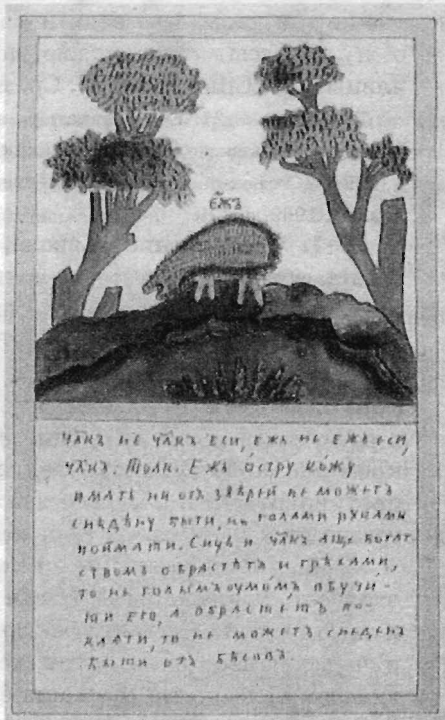 ежъ
члкъ не члкъ еси, ежъ не ежъ еси,
члкъ. Толк. Ежъ остру кожу
имать ни отъ звѣрей не можетъ
снѣдену быти, ни голами руками
поймати. Сице и члкъ аще богат
ствомъ обрастѣтъ и грѣхами,
то не голымъ умомъ, обучи-
ти его, а обрастетъ по-
каяти, то не можетъ снеденъ
быти отъ бѣсовъ.